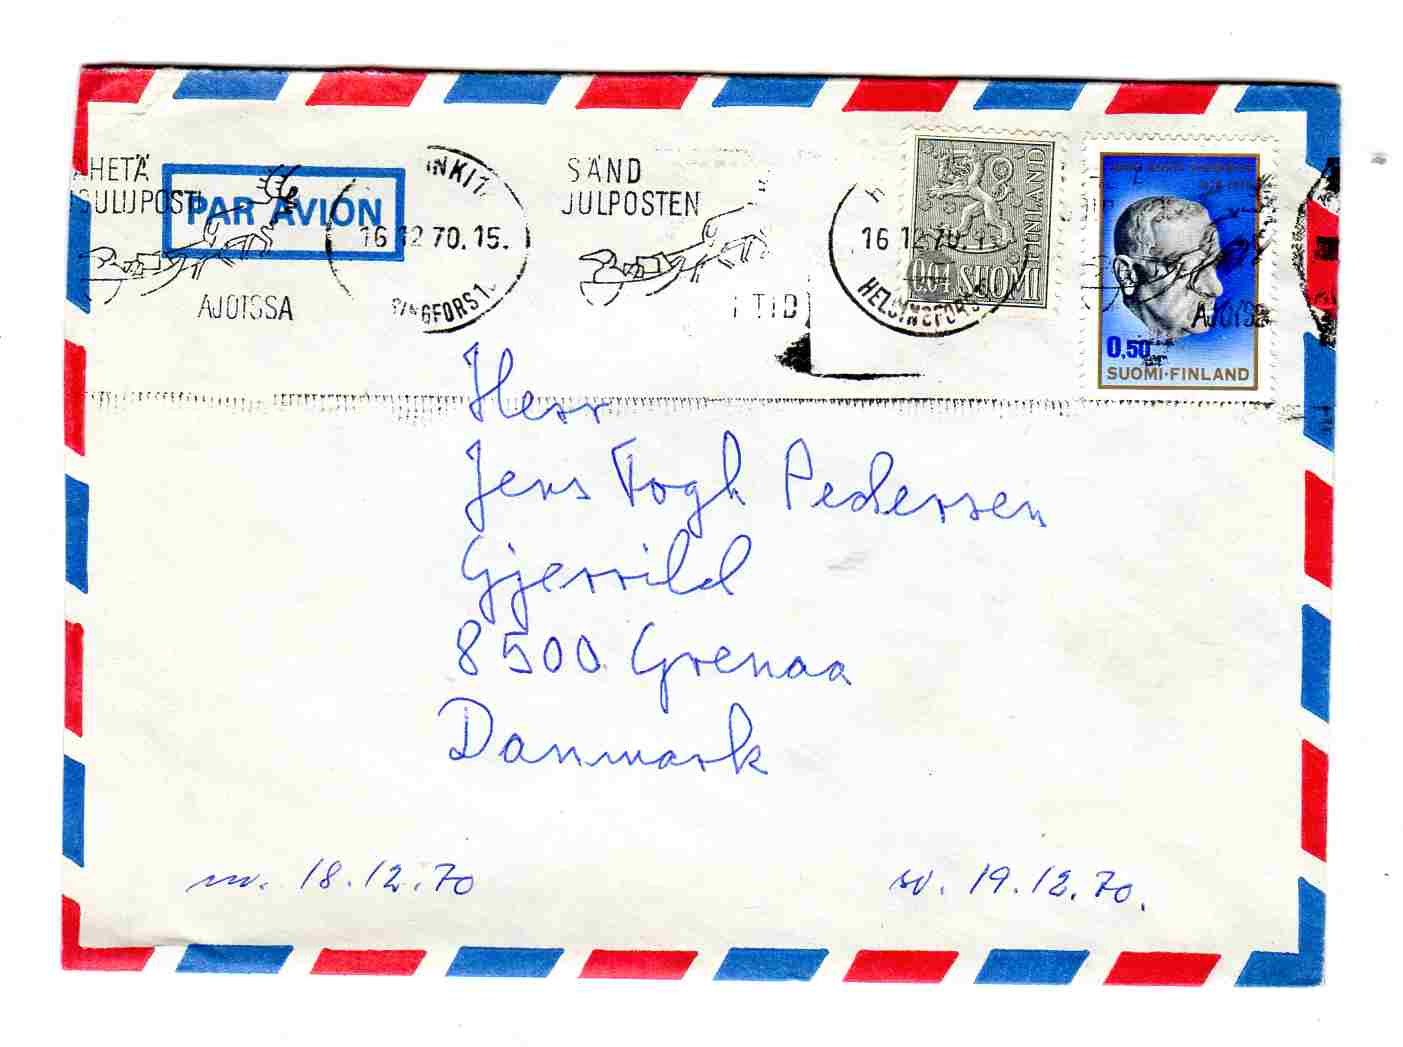 ÄHETÄ
OULUPOSTI
AJOISSA
PAR AVION
INKI 1
16 12 70.15.
SINGFORS 1.
SÄND
JULPOSTEN
I TID
H
16 12 70. 1
HELSINGFORS
0.04 SUOMI
FINLAND
AJOISS
0,50
SUOMI·FINLAND
Herr
Jens Fogh Pedersen
Gjerrild
8500 Grenaa
Danmark
m. 18.12.70
sv. 19.12.70.